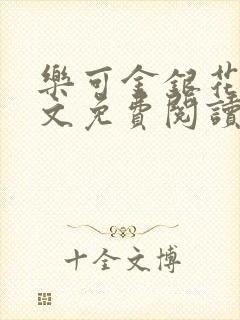 樂可金銀花
文免費閱讀
十全文博